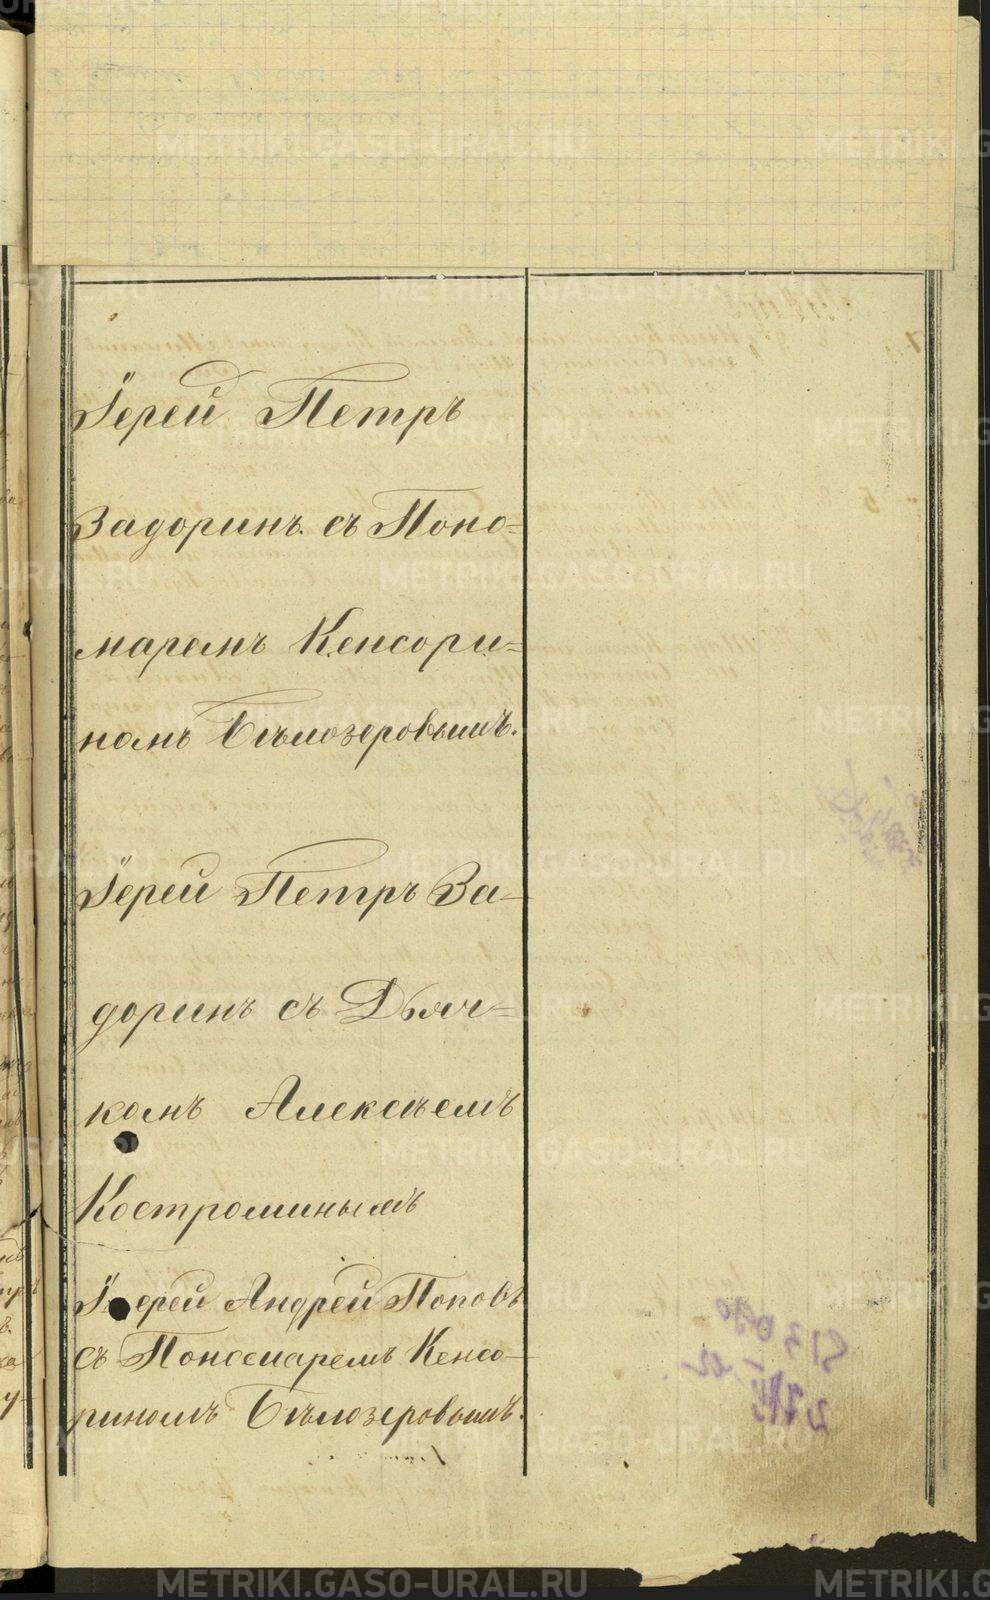 Іерей Петръ
Задоринъ съ Поно-
маремъ Кенсори-
номъ Бѣлозеровымъ.
Іерей Петръ За-
доринъ съ Дьяч-
комъ Алексѣемъ
Костроминымъ
Іерей Андрей Поповъ
съ Пономаремъ Кенсо-
риномъ Бѣлозеровымъ.
METRIKI.GASO-URAL.RU